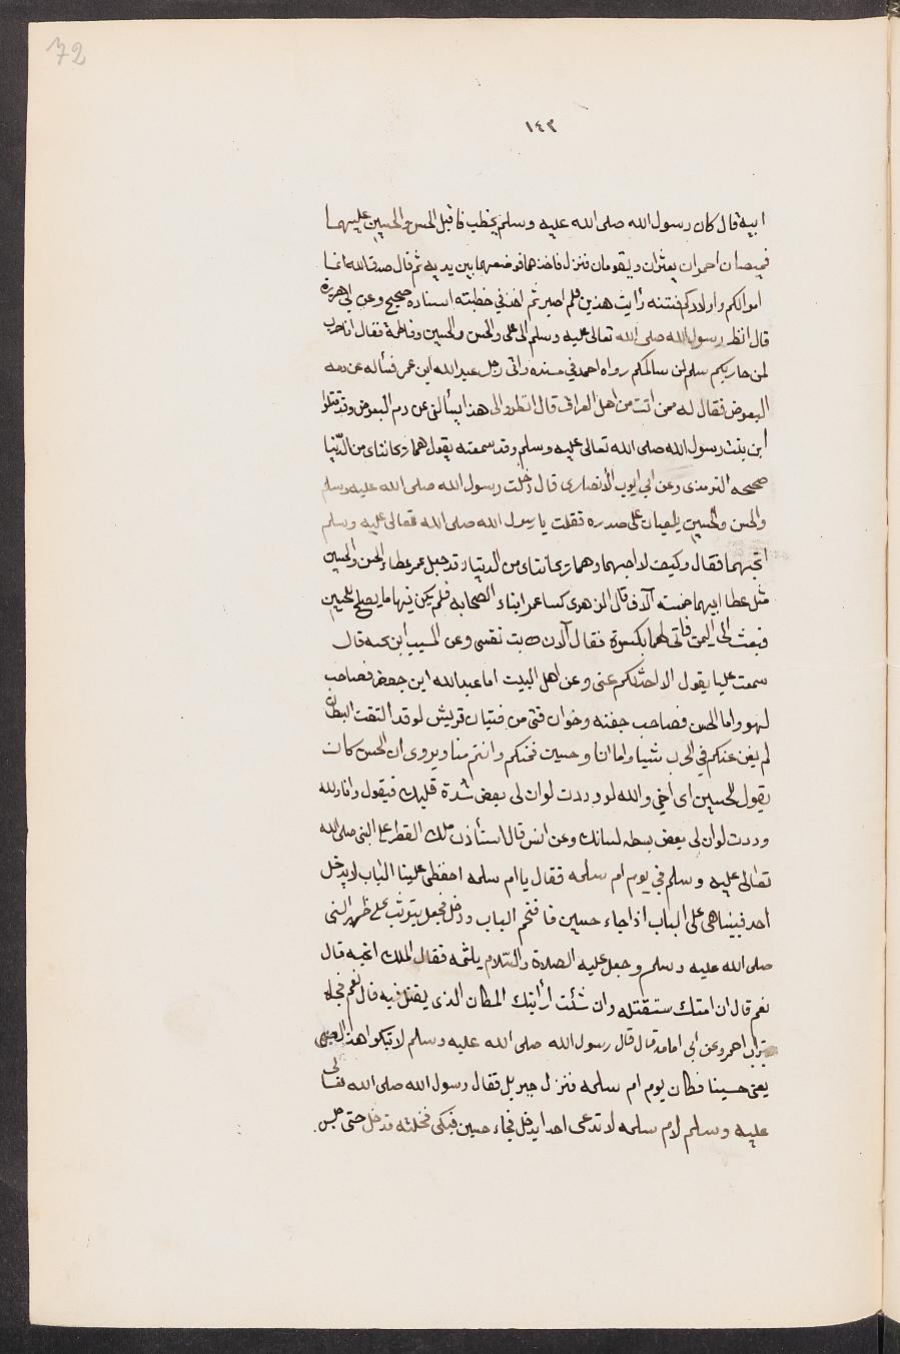 72
١٤٢
ابيه قال كان رسول الله صلى الله عليه وسلم يخطب فاقبل الحسن والحسين عليهما
قميصان احمران يعثران ويقومان فنزل فاخذهما فوضعهما بين يديه ثم قال صدق الله انما
اموالكم واولادكم فتنة رأيت هذين فلم اصبر ثم اخذ في خطبته اسناده صحيح وعن ابي هريرة
قال انظر رسول الله صلى الله تعالى عليه وسلم الى على والحسن والحسين وفاطمة فقال انا حرب
لمن حاربكم سلم لمن سالمكم رواه احمد في مسنده واتى رجل عبد الله ابن عمر فسأله عن دمه
البعوض فقال له ممن انت من اهل العراق قال انظروا الى هذا يسألنى عن دم البعوض وقد قتلوا
أبن بنت رسول الله صلى الله تعالى عليه وسلم وقد سمعته يقول هما ريحانتاى من الدّنيا
صححه الترمذى وعن ابي ايوب الأنصارى قال دخلت رسول الله صلى الله عليه وسلم
والحسن والحسين يلعبان على صدره فقلت يا رسول الله صلى الله تعالى عليه وسلم
اتحبهما فقال وكيف لا احبهما وهما ريحانتاى من الدنيا وقد جعل عمر عطاء الحسن والحسين
مثل عطا ابيهما خمسته آلاف قال الزهرى كسا عمر ابناء الصحابه فلم يكن فيها ما يصلح للحسين
فبعث الى اليمن فأتى لهما بكسوة فقال آلان طابت نفسى وعن المسيب ابن نجبه قال
سمعت عليا يقول الا احدثكم عنى وعن اهل البيت اما عبد الله ابن جعفر فصاحب
لهو واما الحسن فصاحب جفنه وخوان فتى من فتيان قريش لو قد التقت البطان
لم يغن عنكم في الحرب شيئا واما انا وحسين فنحنكم وانتم منا ويروى ان الحسن كان
يقول للحسين اى اخي والله لوددت لو ان لى بعض شدة قلبك فيقول وانا والله
وددت لو ان لى بعض بسطه لسانك وعن انس قال استأذن ملك القطر على النبى صلى الله
تعالى عليه وسلم في يوم ام سلمه فقال يا ام سلمه احفظى علينا الباب لا يدخل
احد فبينا هى على الباب اذ اجاء حسين فافتحم الباب ودخل فجعل يتوثب على ظهر النبى
صلى الله عليه وسلم وجعل عليه الصلاة والسّلام يلثمه فقال الملك اتحبه قال
نعم قال ان امتك ستقتله وان شئت أرأيتك المكان الذى يقتل فيه قال نعم فجاء
بتراب احمر وعن ابي امامه قال قال رسول الله صلى الله عليه وسلم لا تبكوا هذا الصبى
يعنى حسينا فكان يوم ام سلمه فنزل جبريل فقال رسول الله صلى الله تعالى
عليه وسلم لام سلمه لا تدعى احدا يدخل فجاء حسين فبكى فخلته فدخل حتى جلس